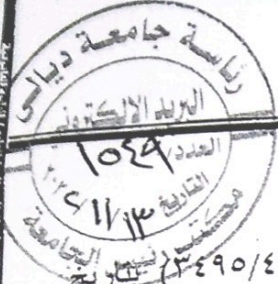 رئاسة جامعة ديالى
البريد الالكتروني
العدد/ ١٥٤٩
التاريخ ١٣/١١/
مكتب رئيس الجامعة
٣٤٩٥/٤